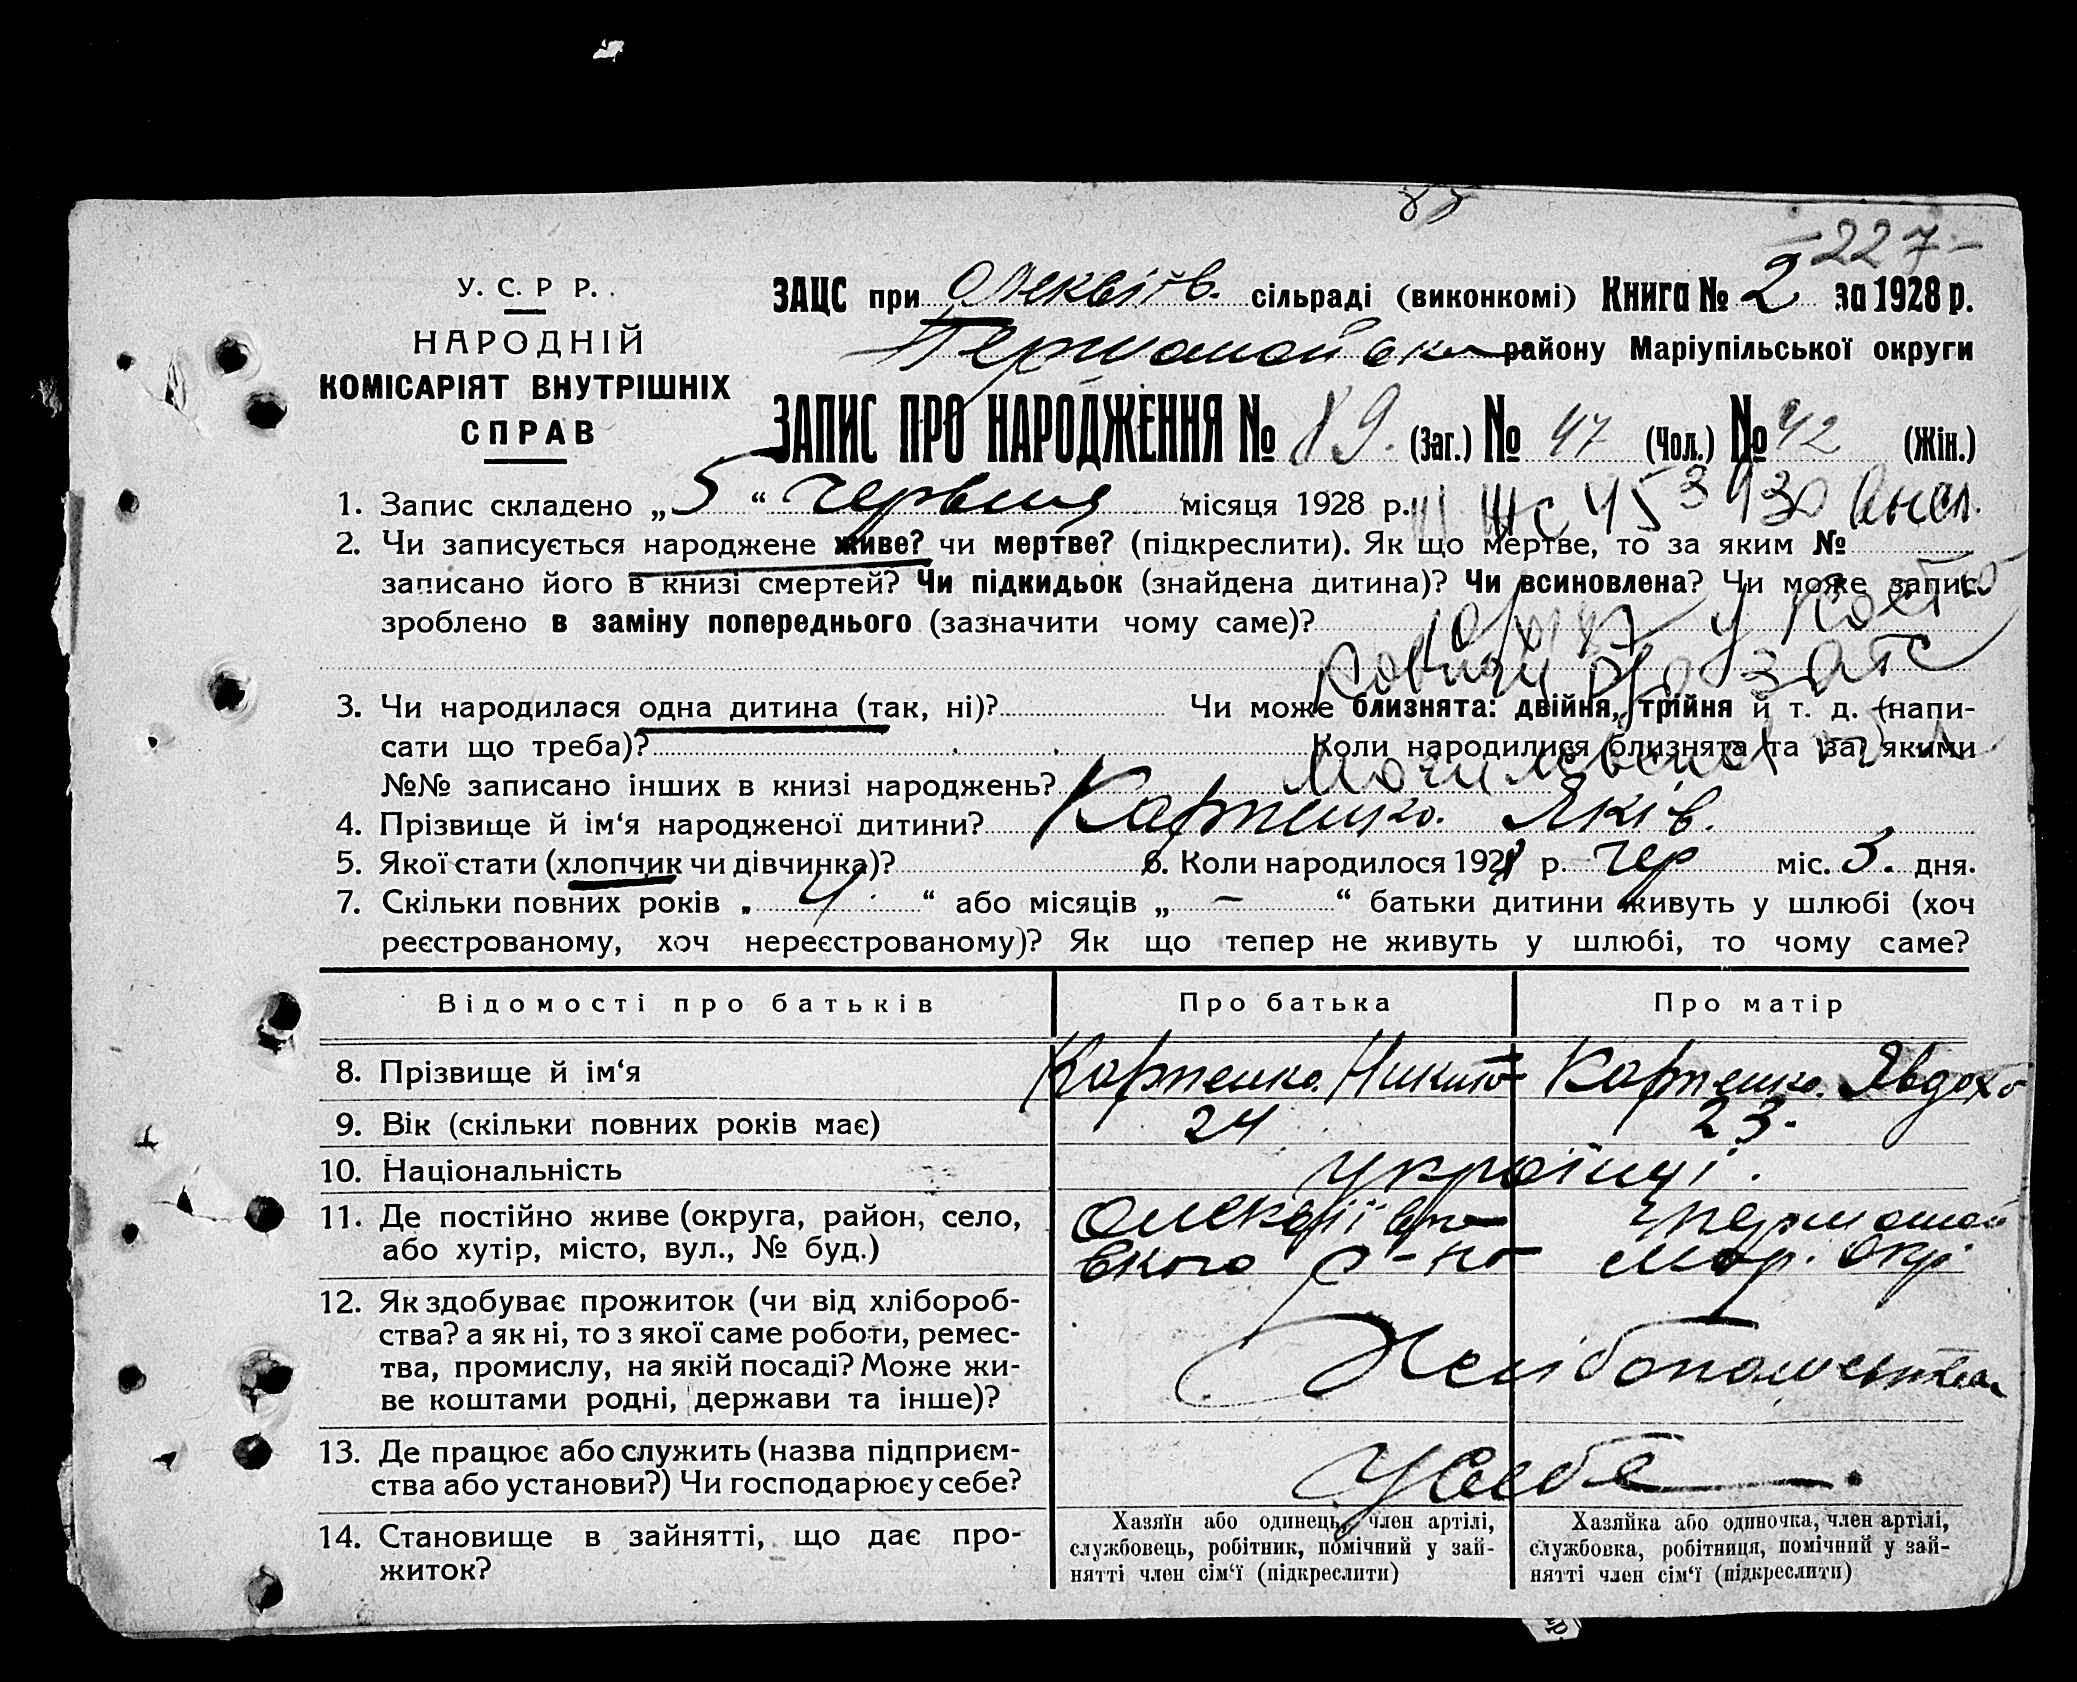 -227-
У. С. Р Р.
НАРОДНІЙ
КОМІСАРІЯТ ВНУТРІШНІХ
СПРАВ
ЗАЦС при сільраді (виконкомі) Книга № 2 за 1928 р.
району Маріупільської округи
ЗАПИС ПРО НАРОДЖЕННЯ № 89. (Заг.) № 47 (Чол.) № 42 (Жін.)
1. Запис складено „5“ червня місяця 1928 р.
2. Чи записується народжене живе? чи мертве? (підкреслити). Як що мертве, то за яким №
записано його в книзі смертей? Чи підкидьок (знайдена дитина)? Чи всиновлена? Чи може запис
зроблено в заміну попереднього (зазначити чому саме)?
3. Чи народилася одна дитина (так, ні)? Чи може близнята: двійня, трійня й т. д. (напи-
сати що треба)? Коли народилися близнята та за якими
№№ записано інших в книзі народжень?
4. Прізвище й ім‘я народженої дитини? Карпенко. Яків.
5. Якої стати (хлопчик чи дівчинка)? 6. Коли народилося 1928 р. чер міс. 3. дня.
7. Скільки повних років „ 4 “ або місяців „ — “ батьки дитини живуть у шлюбі (хоч
реєстрованому, хоч нереєстрованому)? Як що тепер не живуть у шлюбі, то чому саме?
Відомості про батьків Про батька Про матір
8. Прізвище й ім‘я Карпенко. Никита Карпенко. Явдоха
9. Вік (скільки повних років має) 24 23.
10. Національність українці.
11. Де постійно живе (округа, район, село,
або хутір, місто, вул., № буд.) вкого р-на Мар. окр.
12. Як здобуває прожиток (чи від хлібороб-
ства? а як ні, то з якої саме роботи, ремес-
тва, промислу, на якій посаді? Може жи-
ве коштами родні, держави та інше)?
13. Де працює або служить (назва підприєм-
ства або установи?) Чи господарює у себе? У себе.
14. Становище в зайнятті, що дає про-
житок?
Хазяїн або одинець, член артілі,
службовець, робітник, помічний у зай-
нятті член сім‘ї (підкреслити)
Хазяйка або одиночка, член артілі,
службовка, робітниця, помічний у зай-
нятті член сім‘ї (підкреслити)